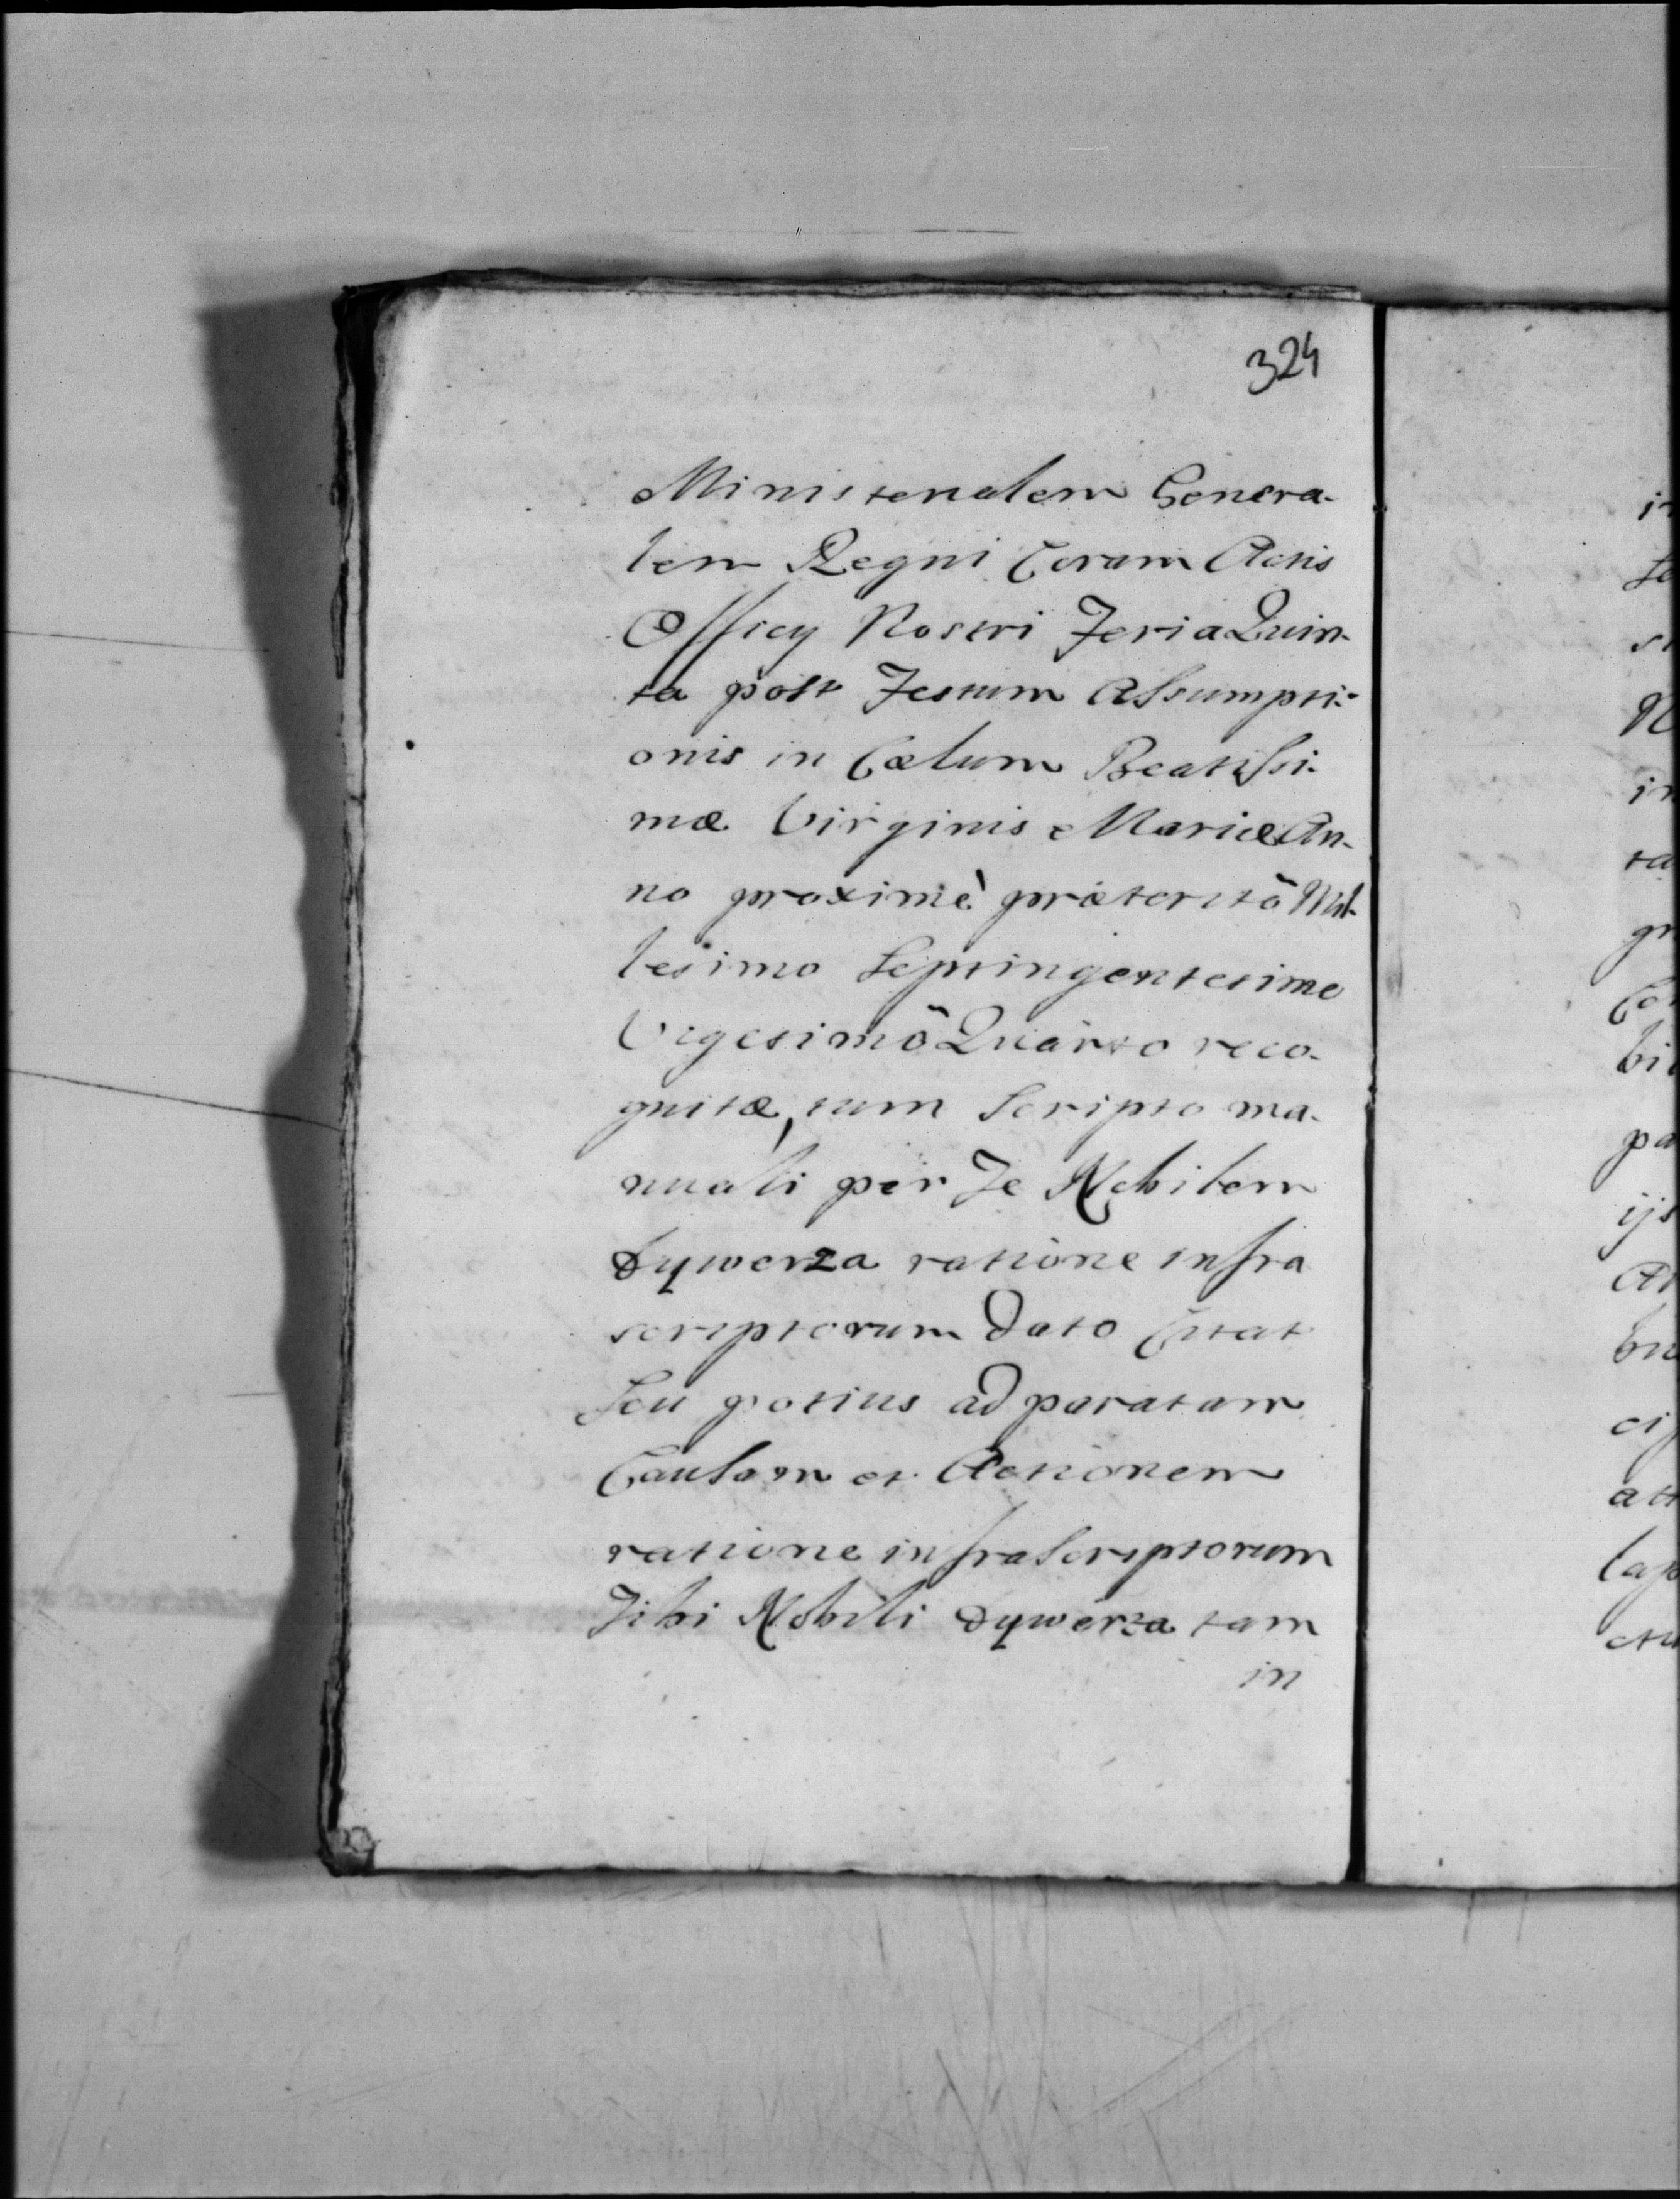 324
Ministerialem Genera-
lem Regni Coram Actis
Officy Nostri Feria Quin-
ta post Festum Assumpti-
onis in Cælum Beatissi-
mæ Virginis Mariæ An-
no proximè præteritô Mil-
lesimo Septingentesimo
Vigesimô Quarto reco-
gnitæ, tum Scripto ma-
nuali per Te Nobilem
Dywerza ratione infra
scriptorum dato Citat
Seu potius ad paratam
Causam et Actionem
ratione infraScriptorum
Tibi Nobili Dywerza tam
in